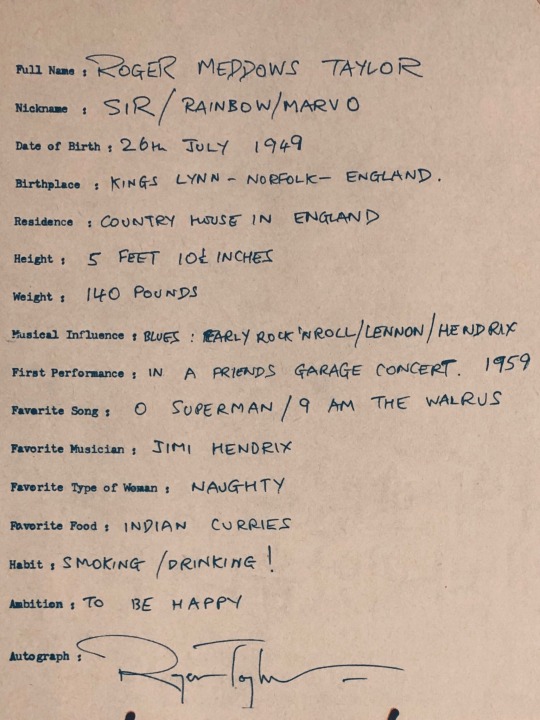 Full Name : ROGER MEDDOWS TAYLOR
Nickname : SIR/RAINBOW/MARVO
Date of Birth : 26th JULY 1949
Birthplace : KINGS LYNN - NORFOLK - ENGLAND.
Residence : COUNTRY HOUSE IN ENGLAND
Height : 5 FEET 10½ INCHES
Weight : 140 POUNDS
Musical Influence : BLUES : EARLY ROCK 'N ROLL/LENNON/HENDRIX
First Performance : IN A FRIENDS GARAGE CONCERT. 1959
Favorite Song : O SUPERMAN/9 AM THE WALRUS
Favorite Musician : JIMI HENDRIX
Favorite Type of Woman : NAUGHTY
Favorite Food : INDIAN CURRIES
Habit : SMOKING /DRINKING !
Ambition : TO BE HAPPY
Autograph : Roger Taylor